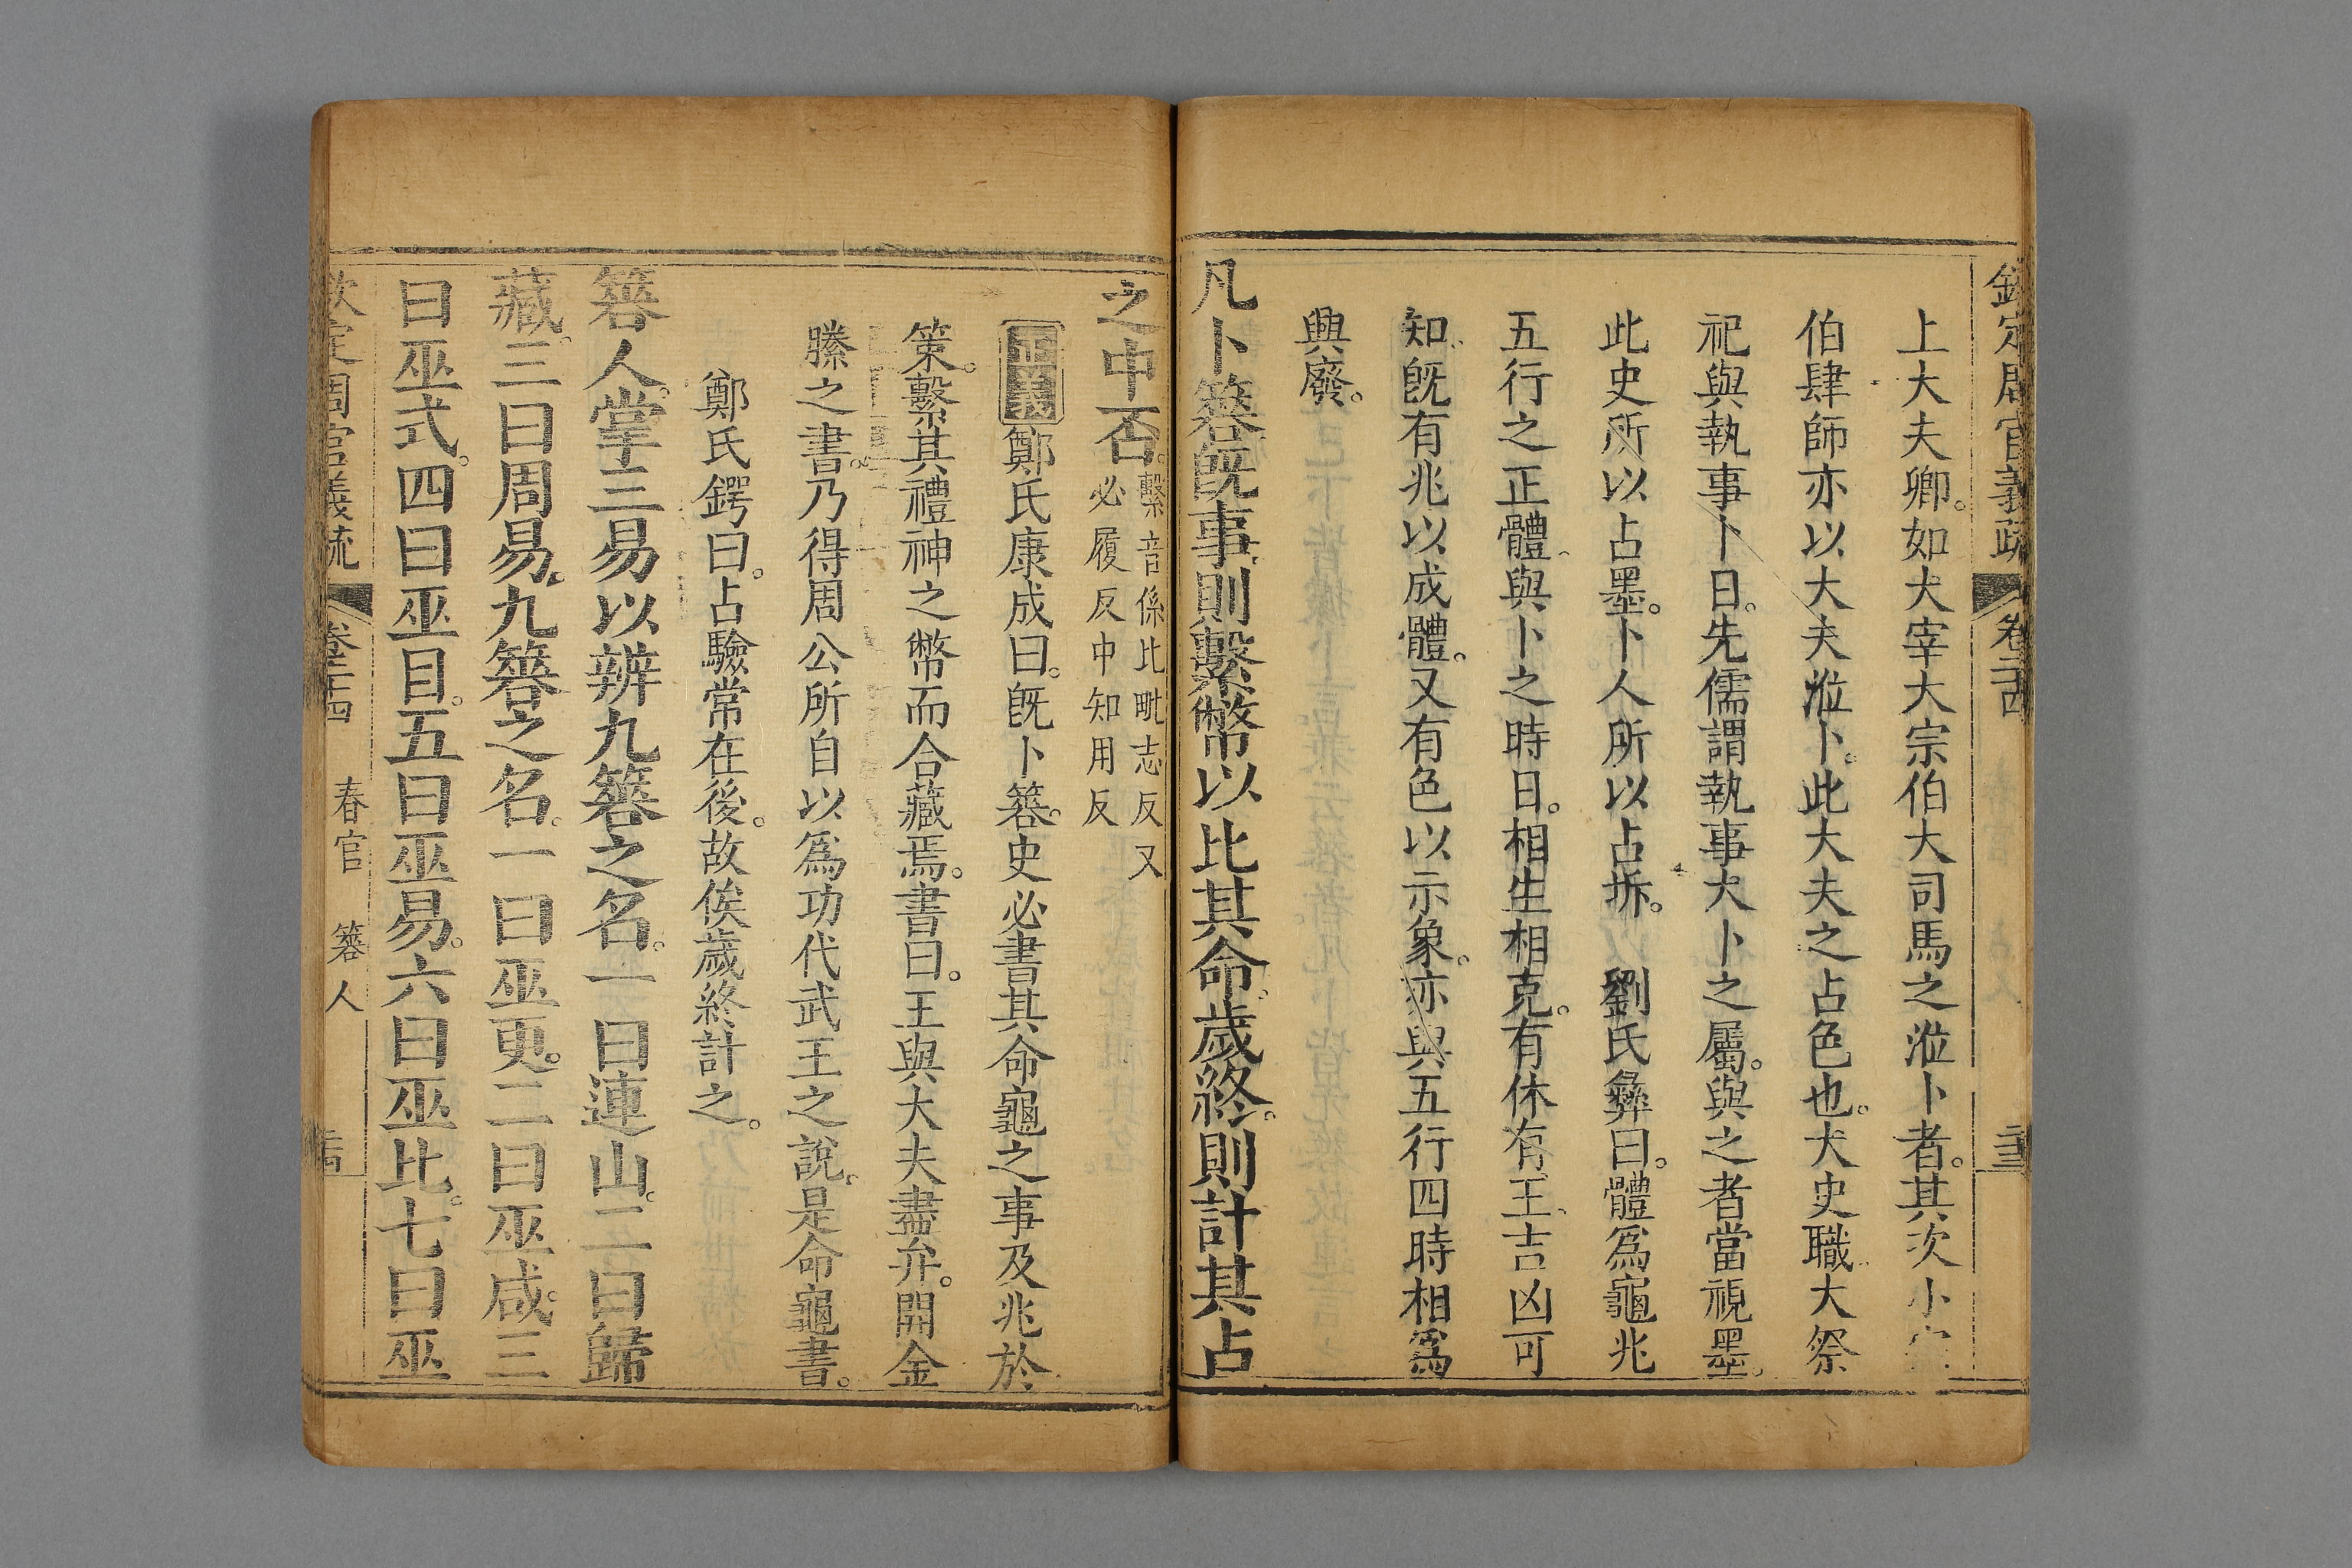 欽定周官義疏 卷二十四 二十三
上大夫卿。如大宰大宗伯大司馬之涖卜者。其次小宰
伯肆師亦以大夫涖卜。此大夫之占色也。大史職大祭
祀與執事卜日。先儒謂執事大卜之屬。與之者當視墨。
此史所以占墨。卜人所以占坼。 劉氏彝曰。體爲龜兆
五行之正體、與卜之時日。相生相克。有休有王、吉凶可
知、旣有兆以成體。又有色以示象。亦與五行四時相爲
興廢。
凡卜簭旣事、則繫幣以比其命、歲終。則計其占
之中否。繫音係比毗志反又
必履反中知用反
正義 鄭氏康成曰。旣卜簭。史必書其命龜之事及兆於
策。繫其禮神之幣而合藏焉。書曰。王與大夫盡弁。開金
縢之書。乃得周公所自以爲功代武王之說。是命龜書。
鄭氏鍔曰。占驗常在後。故俟歲終計之。
簭人。掌三易以辨九簭之名。一曰連山。二曰歸
藏。三曰周易。九簭之名。一曰巫更。二曰巫咸。三
曰巫式。四曰巫目。五曰巫易。六曰巫比。七曰巫
欽定周官義疏 卷二十四 春官 簭人 二十四